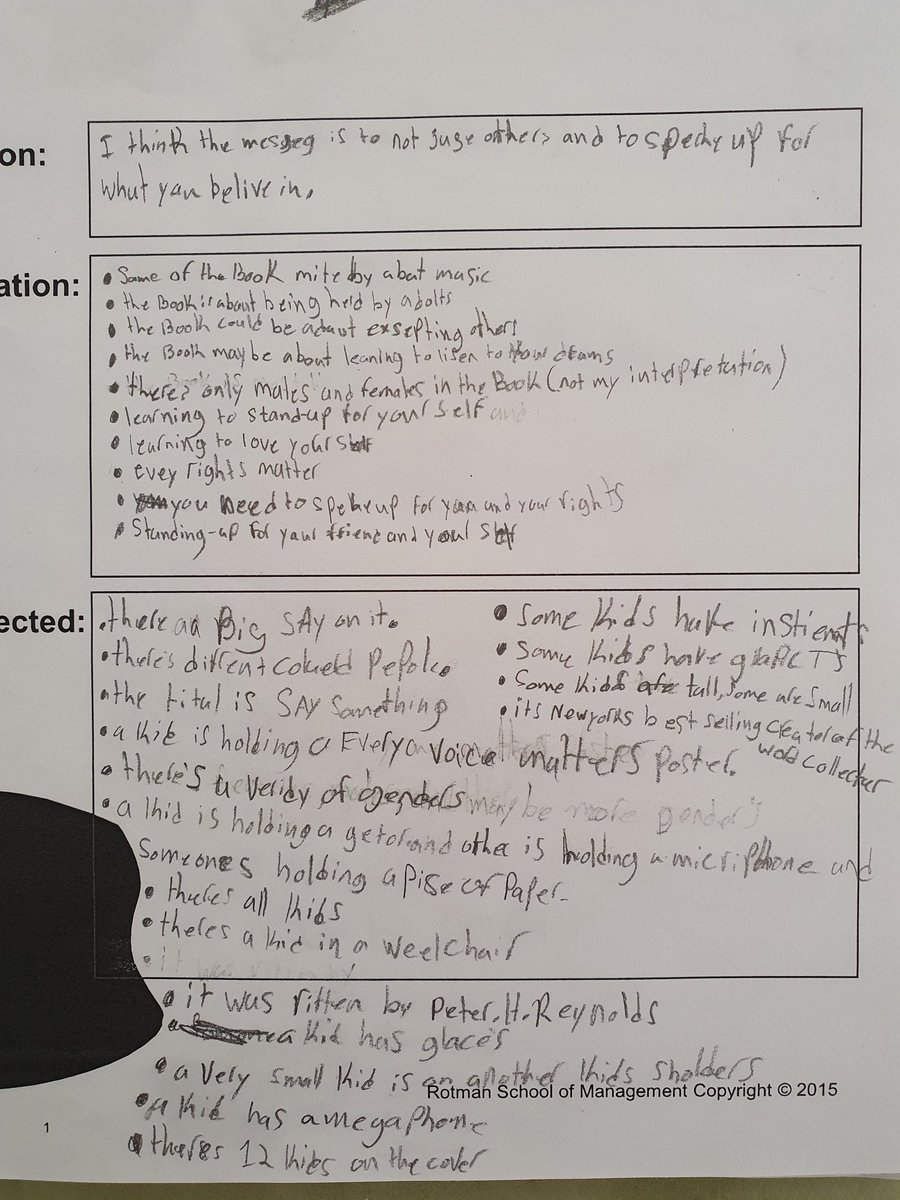 on:
I think the messeg is to not juge others and to speake up for
what you belive in.
ation:
• Some of the Book mite by abat music
• the Book is about being held by adolts
• the Book could be adaut exsepting others
• the Book may be about leaning to lisen to your dreams
• there's only males and females in the Book (not my interpretation)
• learning to stand-up for your self and
• learning to love your self
• evey rights matter
• you need to speke up for you and your rights
• Standing-up for your friend and your self
ected:
• there aa Big SAY on it.
• there's diffrent colued Pepole.
• the tital is SAY something
• a kid is holding a Every voice matters poster.
• there's a veridy of genders may be more gender's
• a kid is holding a getor and othe is holding a micriphone and
someones holding a pise of paper.
• theres all kids
• theres a kid in a weelchair
• it was
• some kids have instients
• some kids have glAFCTS
• some kids are tall, some are small
• its Newyorks best selling creator of the
word collecter
• it was ritten by Peter.H.Reynolds
• a kid has glaces
• a very small kid is on another kids sholders
Rotman School of Management Copyright © 2015
• a kid has a megaphone
1
• theres 12 kids on the cover